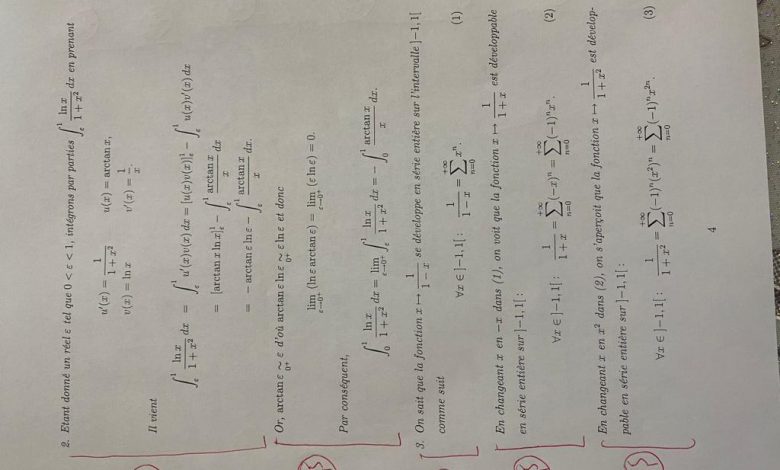 2. Etant donné un réel ε tel que 0 < ε < 1, intégrons par parties ∫_ε^1 ln x / (1 + x²) dx en prenant
u′(x) = 1 / (1 + x²)    u(x) = arctan x,
v(x) = ln x    v′(x) = 1/x.
Il vient
∫_ε^1 ln x / (1 + x²) dx = ∫_ε^1 u′(x)v(x) dx = [u(x)v(x)]_ε^1 − ∫_ε^1 u(x)v′(x) dx
= [arctan x ln x]_ε^1 − ∫_ε^1 arctan x / x dx
= − arctan ε ln ε − ∫_ε^1 arctan x / x dx.
Or, arctan ε ∼_{0⁺} ε d'où arctan ε ln ε ∼_{0⁺} ε ln ε et donc
lim_{ε→0⁺} (ln ε arctan ε) = lim_{ε→0⁺} (ε ln ε) = 0.
Par conséquent,
∫_0^1 ln x / (1 + x²) dx = lim_{ε→0⁺} ∫_ε^1 ln x / (1 + x²) dx = − ∫_0^1 arctan x / x dx.
3. On sait que la fonction x ↦ 1 / (1 − x) se développe en série entière sur l'intervalle ]−1, 1[
comme suit
∀x ∈ ]−1, 1[ : 1 / (1 − x) = ∑_{n=0}^{+∞} xⁿ. (1)
En changeant x en −x dans (1), on voit que la fonction x ↦ 1 / (1 + x) est développable
en série entière sur ]−1, 1[ :
∀x ∈ ]−1, 1[ : 1 / (1 + x) = ∑_{n=0}^{+∞} (−x)ⁿ = ∑_{n=0}^{+∞} (−1)ⁿxⁿ. (2)
En changeant x en x² dans (2), on s'aperçoit que la fonction x ↦ 1 / (1 + x²) est dévelop-
pable en série entière sur ]−1, 1[ :
∀x ∈ ]−1, 1[ : 1 / (1 + x²) = ∑_{n=0}^{+∞} (−1)ⁿ(x²)ⁿ = ∑_{n=0}^{+∞} (−1)ⁿx²ⁿ. (3)
4